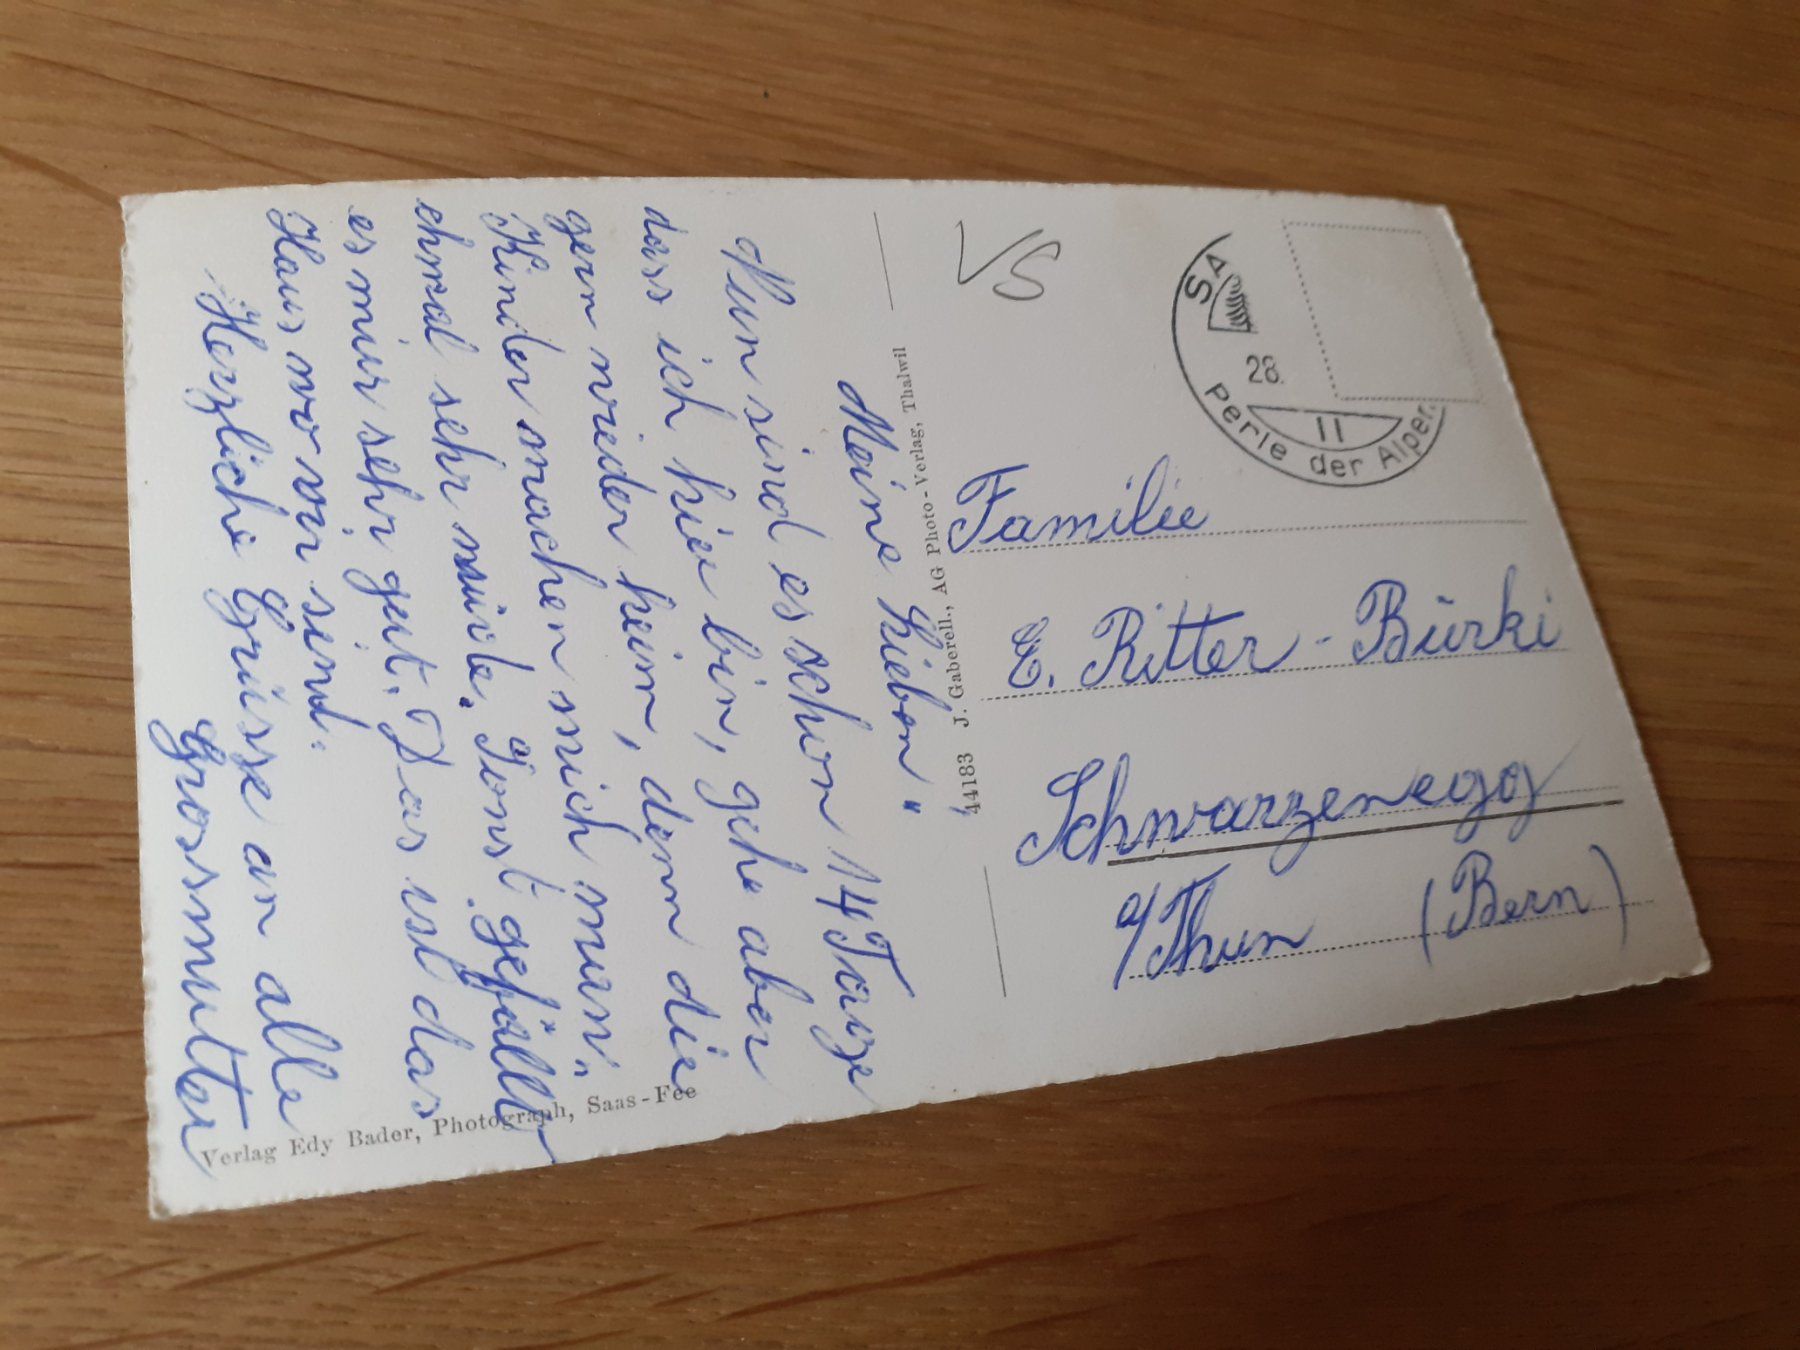 Meine Lieben"
Nun sind es schon 14 Tage
dass ich hier bin, gehe aber
gern wieder heim, denn die
Kinder machen mich man-
chmal sehr müde. Sonst gefällt
es mir sehr gut. Das ist das
Haus wo wir sind.
Herzliche Grüsse an alle
Grossmutter
Verlag Edy Bader, Photograph, Saas-Fee
44183 J. Gaberell., AG Photo-Verlag, Thalwil
VS
SA
28
II
Perle der Alpen
Familie
E. Ritter-Bürki
Schwarzenegg
a/Thun (Bern)